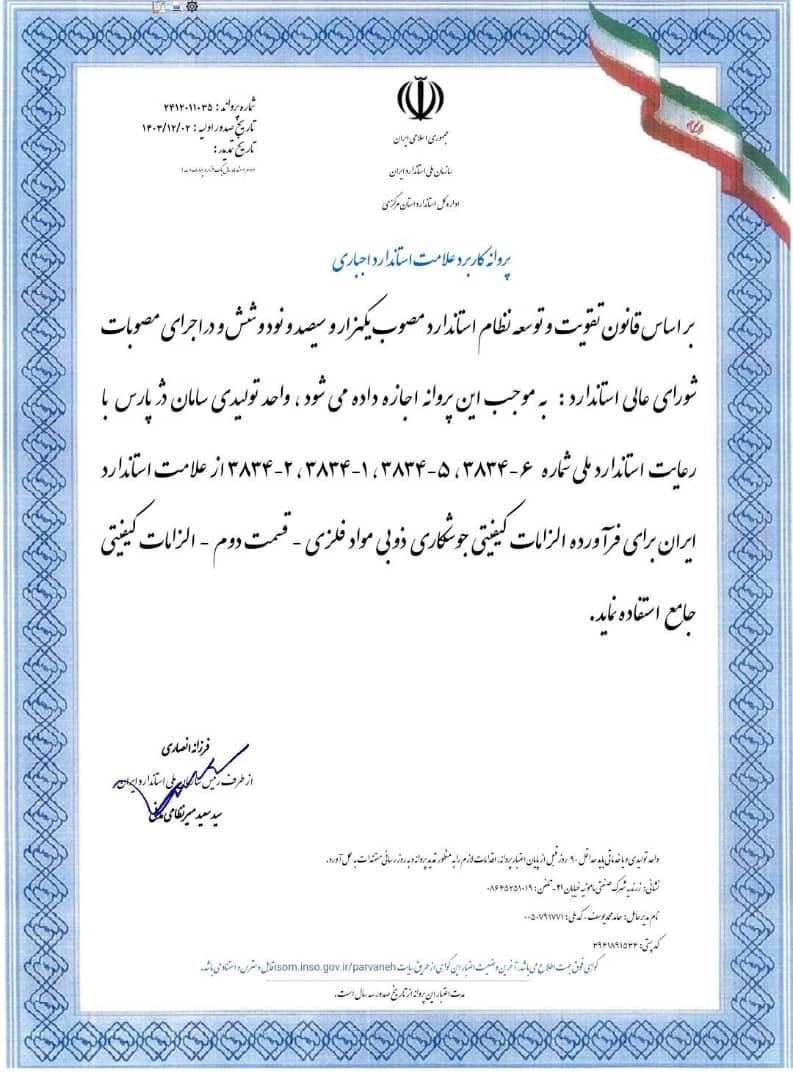 شماره پروانه: ۲۴۱۲۰۱۱۰۳۵
تاریخ صدور اولیه: ۱۴۰۳/۱۲/۰۲
تاریخ تمدید:
جمهوری اسلامی ایران
سازمان ملی استاندارد ایران
اداره کل استاندارد استان مرکزی
پروانه کاربرد علامت استاندارد اجباری
بر اساس قانون تقویت و توسعه نظام استاندارد مصوب یکهزار و سیصد و نود و شش و در اجرای مصوبات
شورای عالی استاندارد : به موجب این پروانه اجازه داده می شود ، واحد تولیدی سامان دژ پارس با
رعایت استاندارد ملی شماره ۶-۳۸۳۴، ۵-۳۸۳۴، ۱-۳۸۳۴، ۲-۳۸۳۴ از علامت استاندارد
ایران برای فرآورده الزامات کیفیتی جوشکاری ذوبی مواد فلزی - قسمت دوم - الزامات کیفیتی
جامع استفاده نماید.
فرزانه انصاری
از طرف رئیس سازمان ملی استاندارد ایران
سید سعید میرنظامی
واحد تولیدی و یا خدماتی باید حداقل ۹۰ روز قبل از پایان اعتبار پروانه، اقدامات لازم را به منظور تمدید پروانه و به روز رسانی مستندات به عمل آورد.
نشانی: زرندیه شهرک صنعتی مامونیه خیابان ۴۱ - تلفن: ۰۸۶۴۵۲۵۱۰۱۹
نام مدیرعامل: حامد محمدیوسف - کد ملی: ۰۰۵۰۷۹۱۷۷۱
کد پستی: ۳۹۴۱۸۹۱۵۳۳
گواهی فوق جهت اطلاع می باشد، آخرین وضعیت اعتبار این گواهی از طریق سایت isom.inso.gov.ir/parvaneh قابل دسترس و استناد می باشد.
مدت اعتبار این پروانه از تاریخ صدور سه سال است.